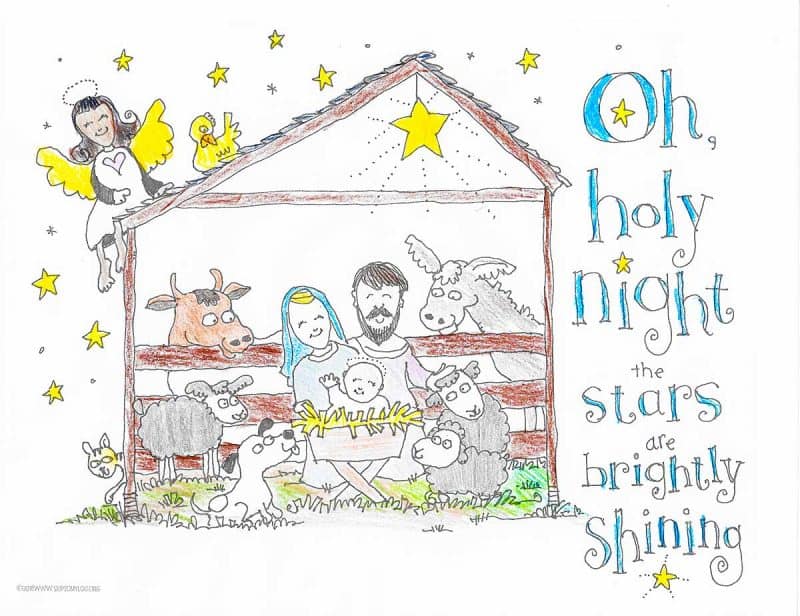 Oh,
holy
night
the
stars
are
brightly
shining